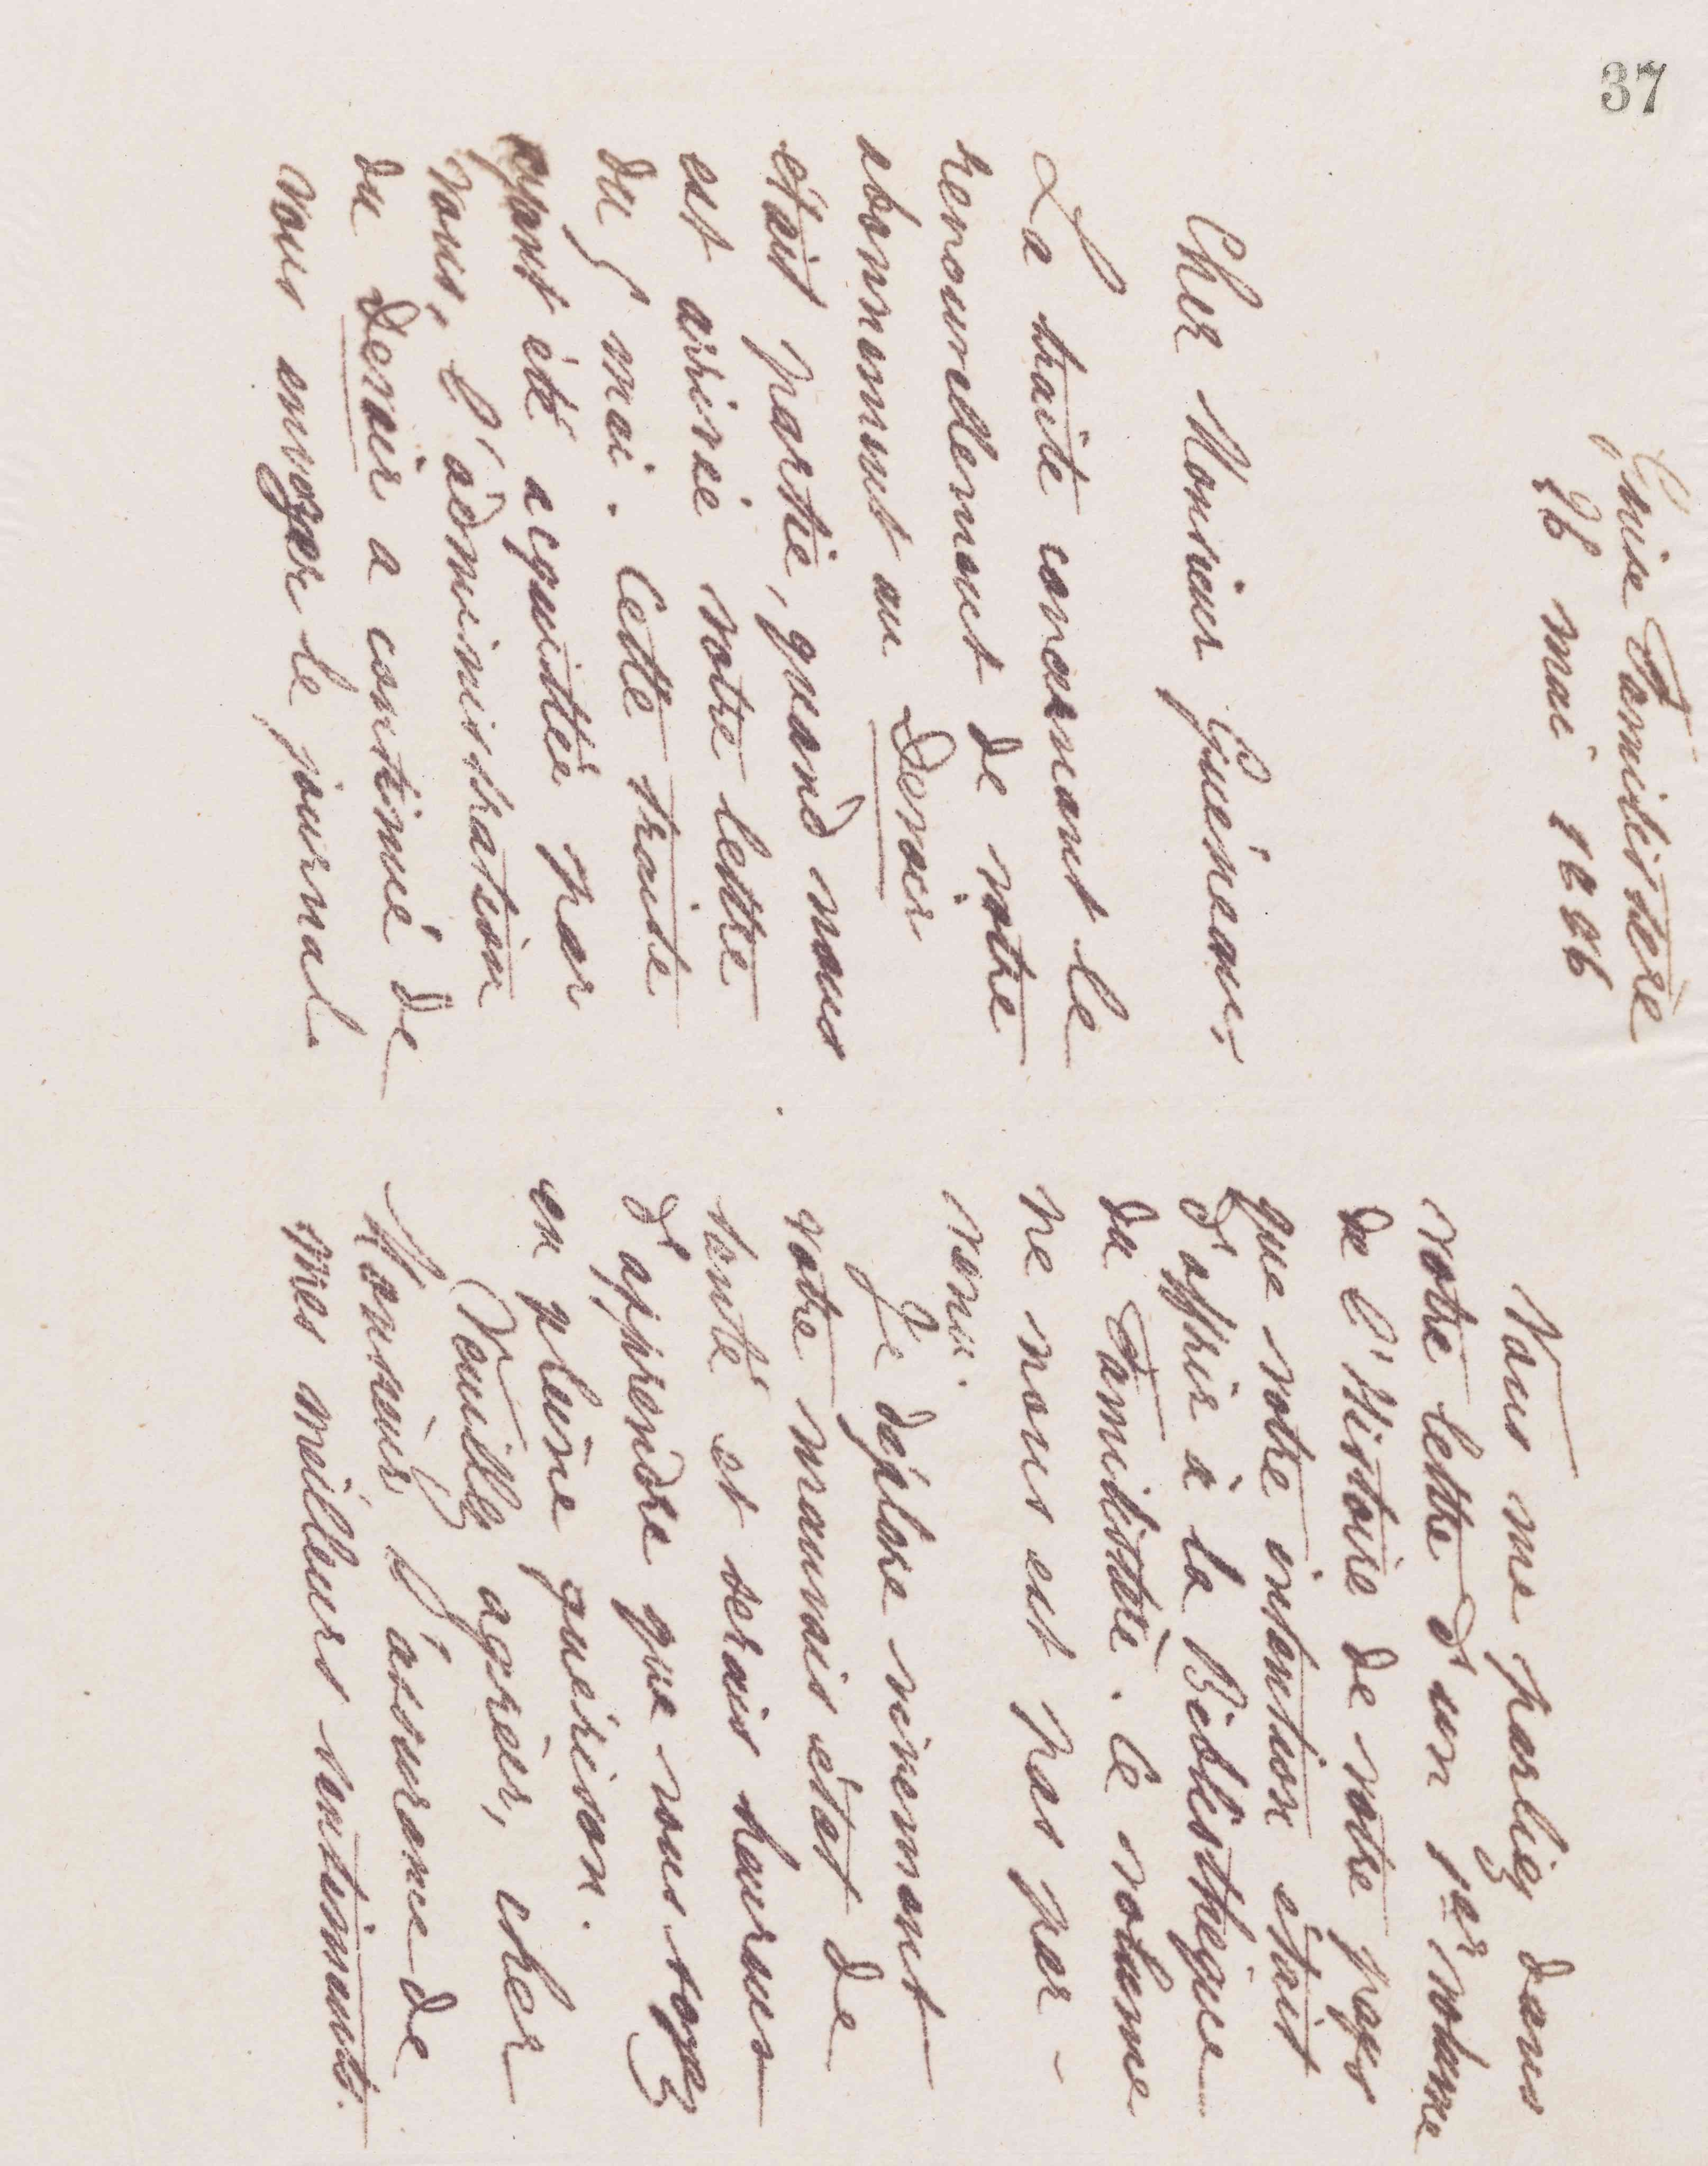 37
Guise Familistère
26 mai 1886
Cher Monsieur Guéneau,
La traite concernant le
renouvellement de votre
abonnement au Devoir
était partie, quand nous
est arrivé votre lettre
du 5 mai. Cette traite
ayant été acquittée par
vous, l'administration
du Devoir a continué de
vous envoyer le journal.
Vous me parliez dans
votre lettre d'un 1er volume
de l'Histoire de votre pays
que votre intention était
d'offrir à la Bibliothèque
du Familistère. Ce volume
ne nous est pas par-
venu.
Je déplore vivement
votre mauvais état de
santé et serais heureux
d'apprendre que vous soyez
en pleine guérison.
Veuillez agréer, cher
Monsieur, l'assurance de
mes meilleurs sentiments.